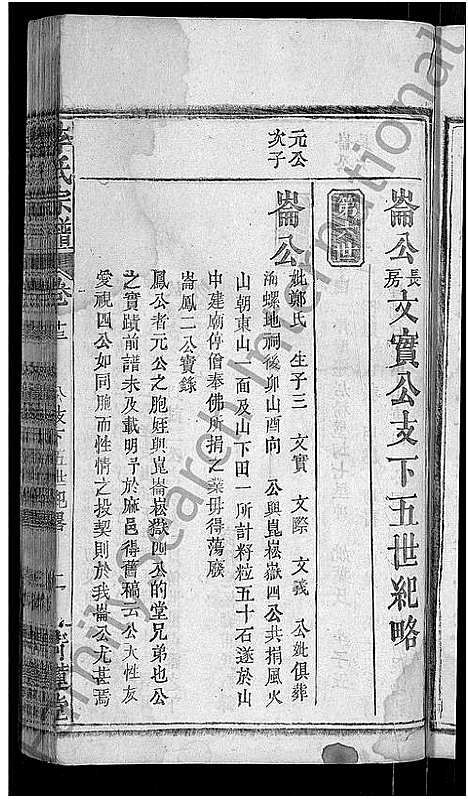 崙公長房文實公支下五世紀略
第六世
元公次子
崙公
妣鄭氏 生子三 文實 文際 文義 公妣俱葬
湳螺地祠後卯山酉向 公與崑崧嶽四公共捐風火
山朝東山一面及山下田一所計籽粒五十石遂於山
中建廟傳僧奉佛所捐之業毋得蕩廢
崙鳳二公實錄
鳳公者元公之胞姪與崑崙崧嶽四公的堂兄弟也公
之實蹟前譜未及載明予於麻邑得舊稿云公大性友
愛視四公如同胞而性情之投契則於我崙公尤甚焉
李氏宗譜
卷廿二 八支下五世紀畧 二
龍堂
FamilySearch International